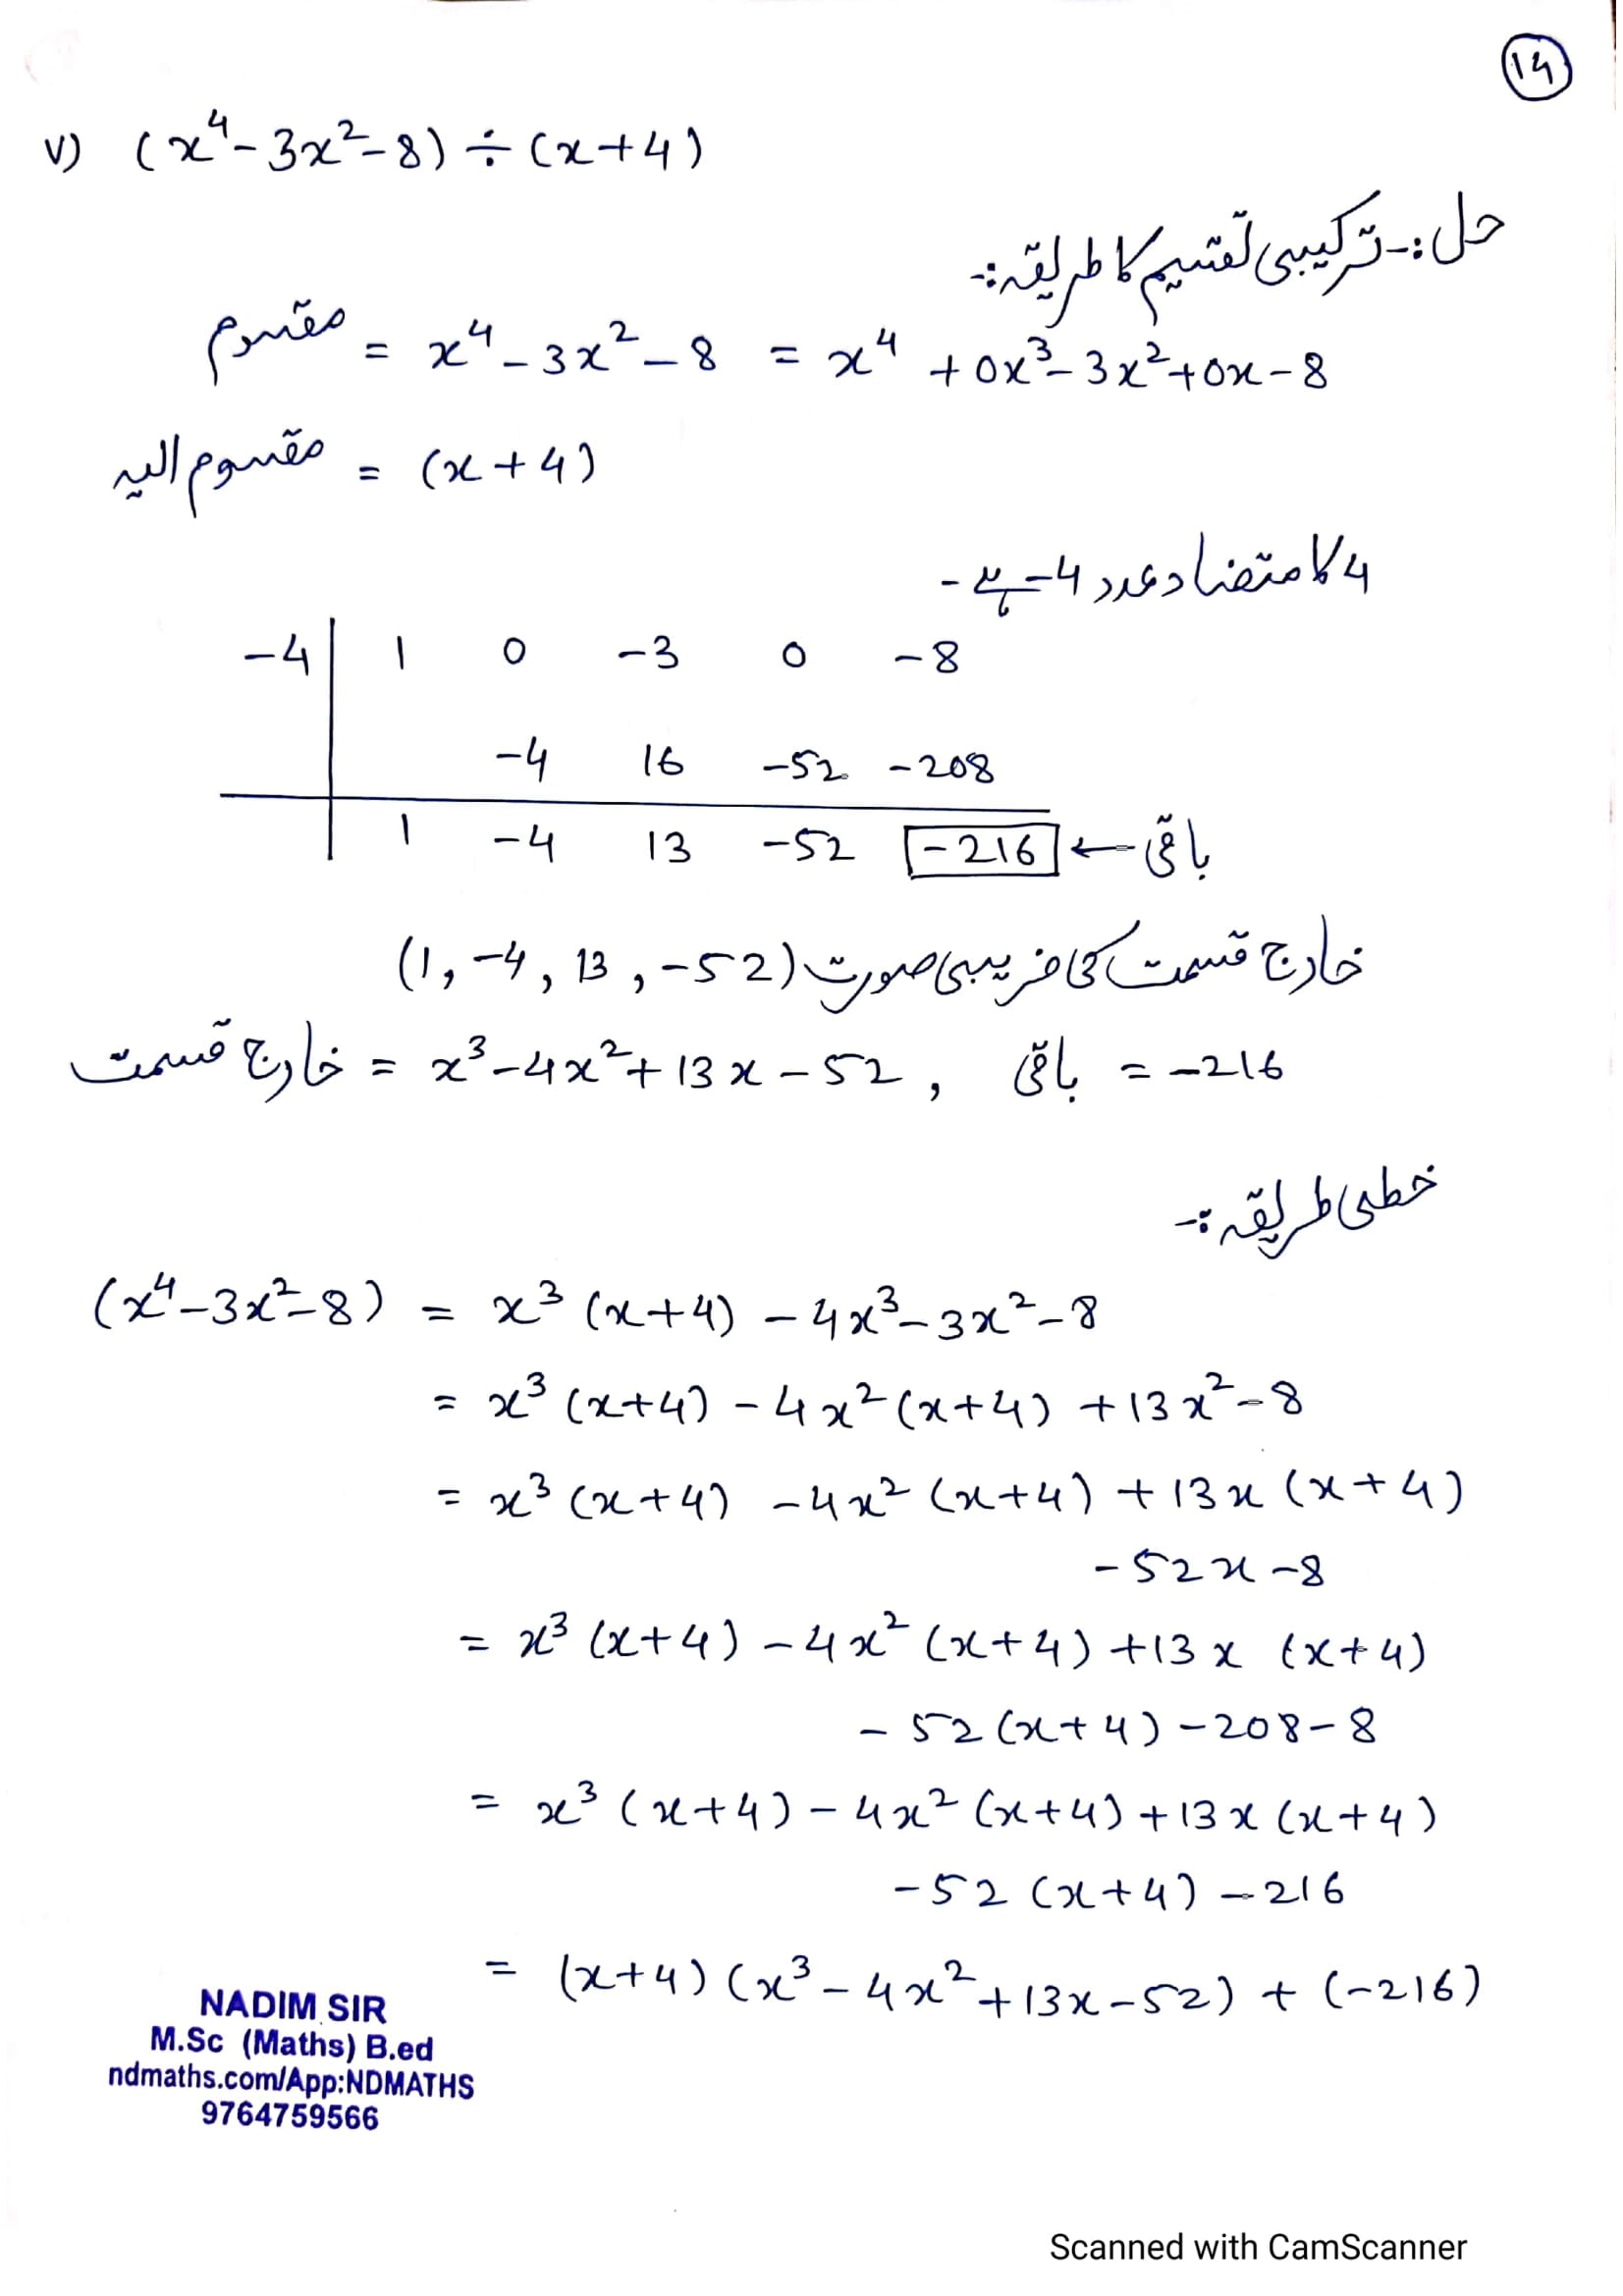 14
v) (x⁴-3x²-8) ÷ (x+4)
حل :- ترکیبی تقسیم کا طریقہ :-
مقسوم = x⁴-3x²-8 = x⁴+0x³-3x²+0x-8
مقسوم الیہ = (x+4)
4 کا متضاد عدد 4- ہے -
-4 | 1 0 -3 0 -8
-4 16 -52 -208
1 -4 13 -52 -216 ← باقی
خارج قسمت کی ضریبی صورت (1, -4, 13, -52)
خارج قسمت = x³-4x²+13x-52 , باقی = -216
خطی طریقہ :-
(x⁴-3x²-8) = x³(x+4) - 4x³-3x²-8
= x³(x+4) - 4x²(x+4) + 13x²-8
= x³(x+4) - 4x²(x+4) + 13x(x+4)
-52x-8
= x³(x+4) - 4x²(x+4) + 13x(x+4)
- 52(x+4) - 208-8
= x³(x+4) - 4x²(x+4) + 13x(x+4)
-52(x+4) - 216
= (x+4)(x³-4x²+13x-52) + (-216)
NADIM SIR
M.Sc (Maths) B.ed
ndmaths.com/App:NDMATHS
9764759566
Scanned with CamScanner